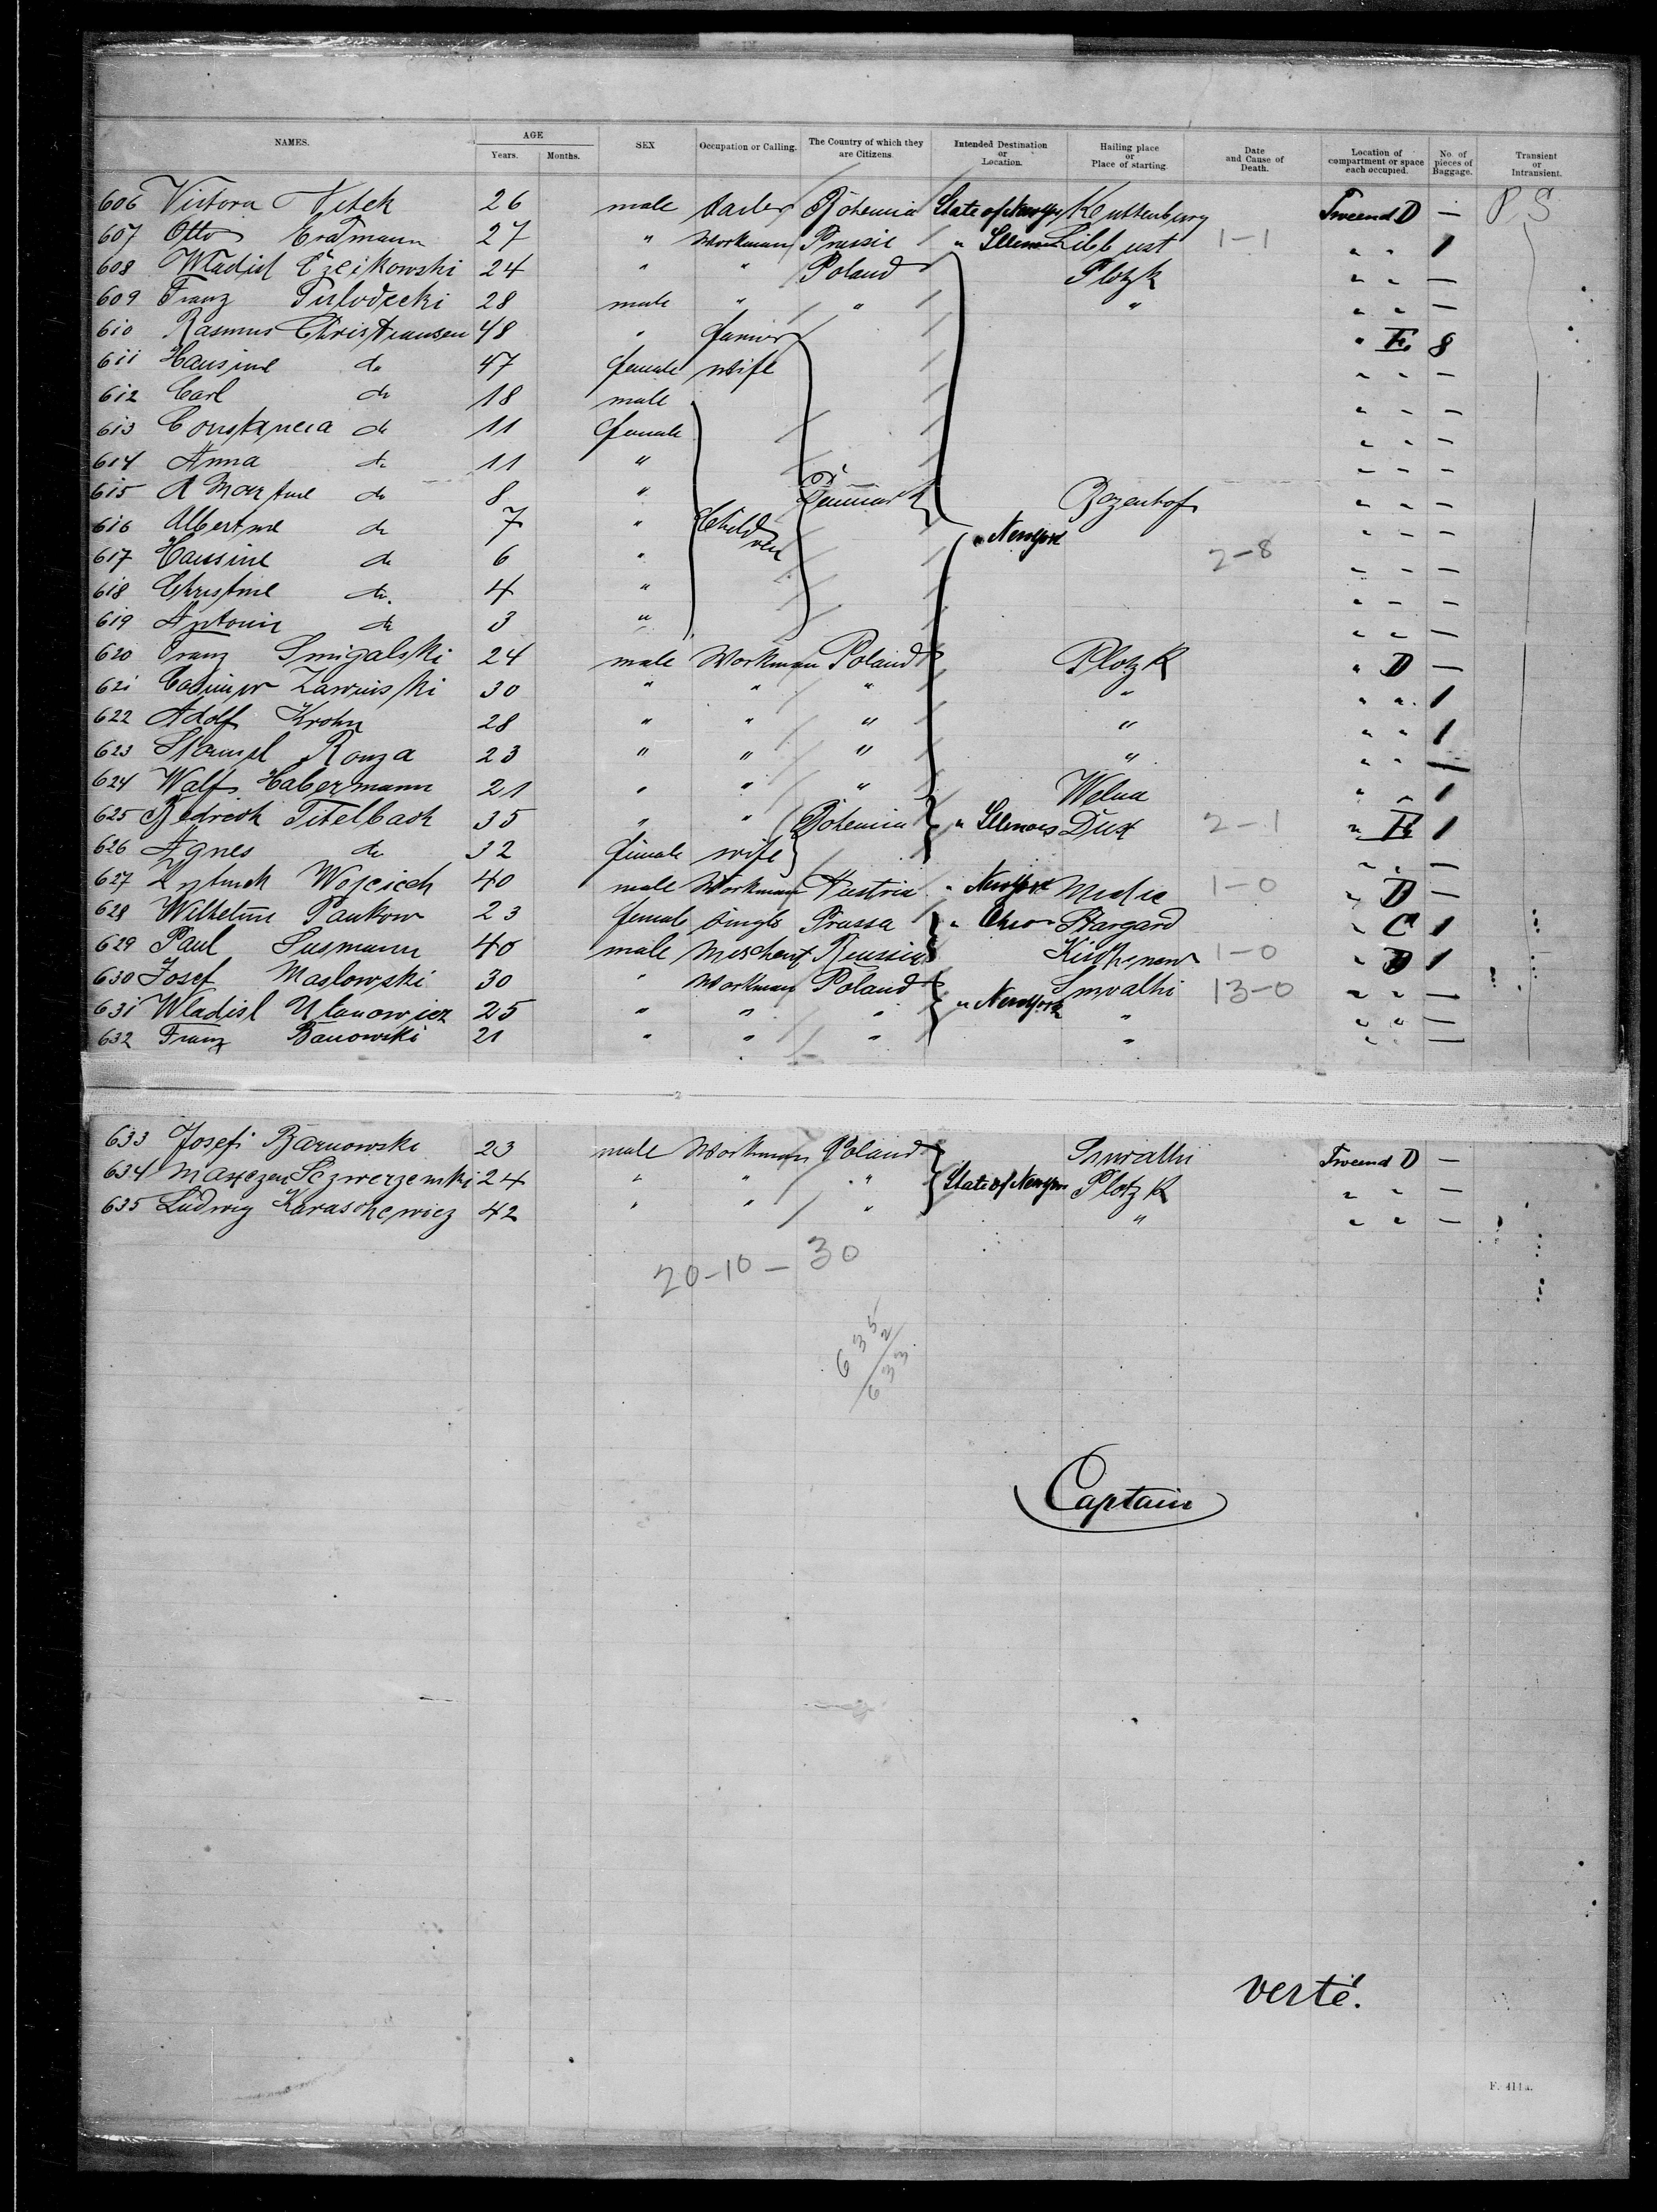 NAMES. AGE Years. Months. SEX Occupation or Calling. The Country of which they are Citizens. Intended Destination or Location. Hailing place or Place of starting. Date and Cause of Death. Location of compartment or space each occupied. No. of pieces of Baggage. Transient or Intransient.
606 Vitek 26 male Bohemia State of New York Kuttenburg Tweend D — P S
607 Otto Erdmann 27 " Workman Prussie " Illinois 1-1 " " 1
608 Wladisl 24 " " Poland Plotzk " " —
609 Franz 28 male " " " " " —
610 Rasmus Christiansen 48 " farmer " E 8
611 Hansine do 47 female wife " " —
612 Carl do 18 male " " —
613 Constancia do 11 female " " —
614 Anna do 11 " " " —
615 A Martine do 8 " Denmark " " —
616 Albertine do 7 " Children " New York " " —
617 Hansine do 6 " 2-8 " " —
618 Christine do. 4 " " " —
619 Antonie do 3 " " " —
620 Franz Smigalski 24 male Workman Poland Plotzk " D —
621 Casimir Zawinski 30 " " " " " " 1
622 Adolf Krohn 28 " " " " " " 1
623 Ronza 23 " " " " " " —
624 Walf Habermann 21 " " " " " 1
625 Bedrich Titelbach 35 " " Bohemia " Illinois Dux 2-1 " E 1
626 Agnes do 32 female wife " " —
627 Wojciech 40 male Workman Austria " New York 1-0 " D —
628 Wilhelm Pankow 23 female single Prussa " Ohio Stargard " C 1
629 Paul Susmann 40 male merchant Russia 1-0 " D 1
630 Josef Maslowski 30 " Workman Poland Suwalki 13-0 " " —
631 Wladisl Ulanowicz 25 " " " " New York " " " —
632 Franz Banowski 21 " " " " " " —
633 Josef Barnowski 23 male Workman Poland Suwalki Tweend D —
634 24 " " " State of New York Plotzk " " —
635 Ludwig Karaschewicz 42 " " " " " " —
20-10-30
635
2
633
Captain
verte.
F. 411a.